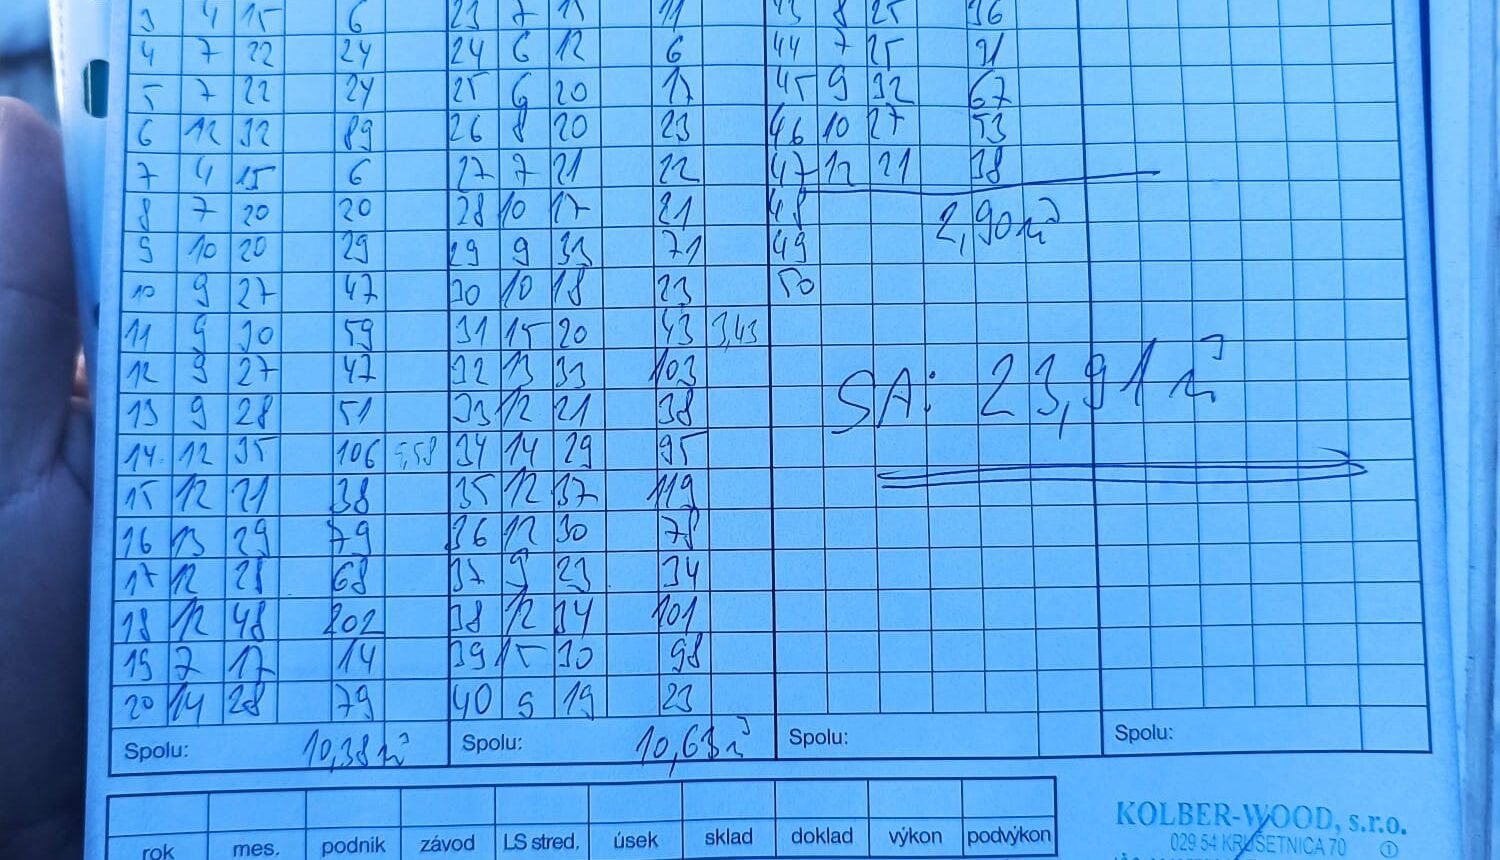 3 4 15 6 23 7 15 11 43 8 25 36
4 7 22 24 24 6 12 6 44 7 25 31
5 7 22 24 25 6 20 17 45 9 32 67
6 12 32 89 26 8 20 23 46 10 27 53
7 4 15 6 27 7 21 22 47 12 21 38
8 7 20 20 28 10 17 21 48 2,90 m³
9 10 20 29 29 9 33 71 49
10 9 27 47 30 10 18 23 50
11 9 30 59 31 15 20 43 3,43
12 9 27 47 32 13 33 103
13 9 28 51 33 12 21 38 SA: 23,91 m³
14. 12 35 106 5,58 34 14 29 95
15 12 21 38 35 12 37 119
16 13 29 79 36 12 30 78
17 12 28 68 37 9 23 34
18 12 48 202 38 12 34 101
19 7 17 14 39 15 30 98
20 14 28 79 40 9 19 23
Spolu: 10,38 m³ Spolu: 10,63 m³ Spolu: Spolu:
rok mes. podnik závod LS stred. úsek sklad doklad výkon podvýkon
KOLBER-WOOD, s.r.o.
029 54 KRUŠETNICA 70 1